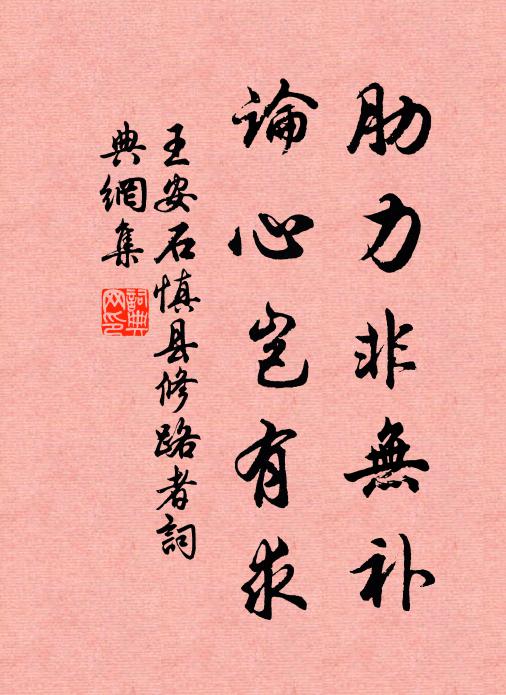 肋力非無补
論心岂有求
王安石慎县修路者詞
典網集
詞典
网印